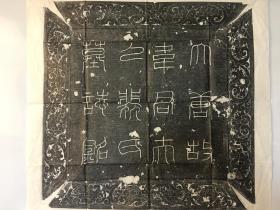 大唐故
韋君夫
人裴氏
墓誌銘